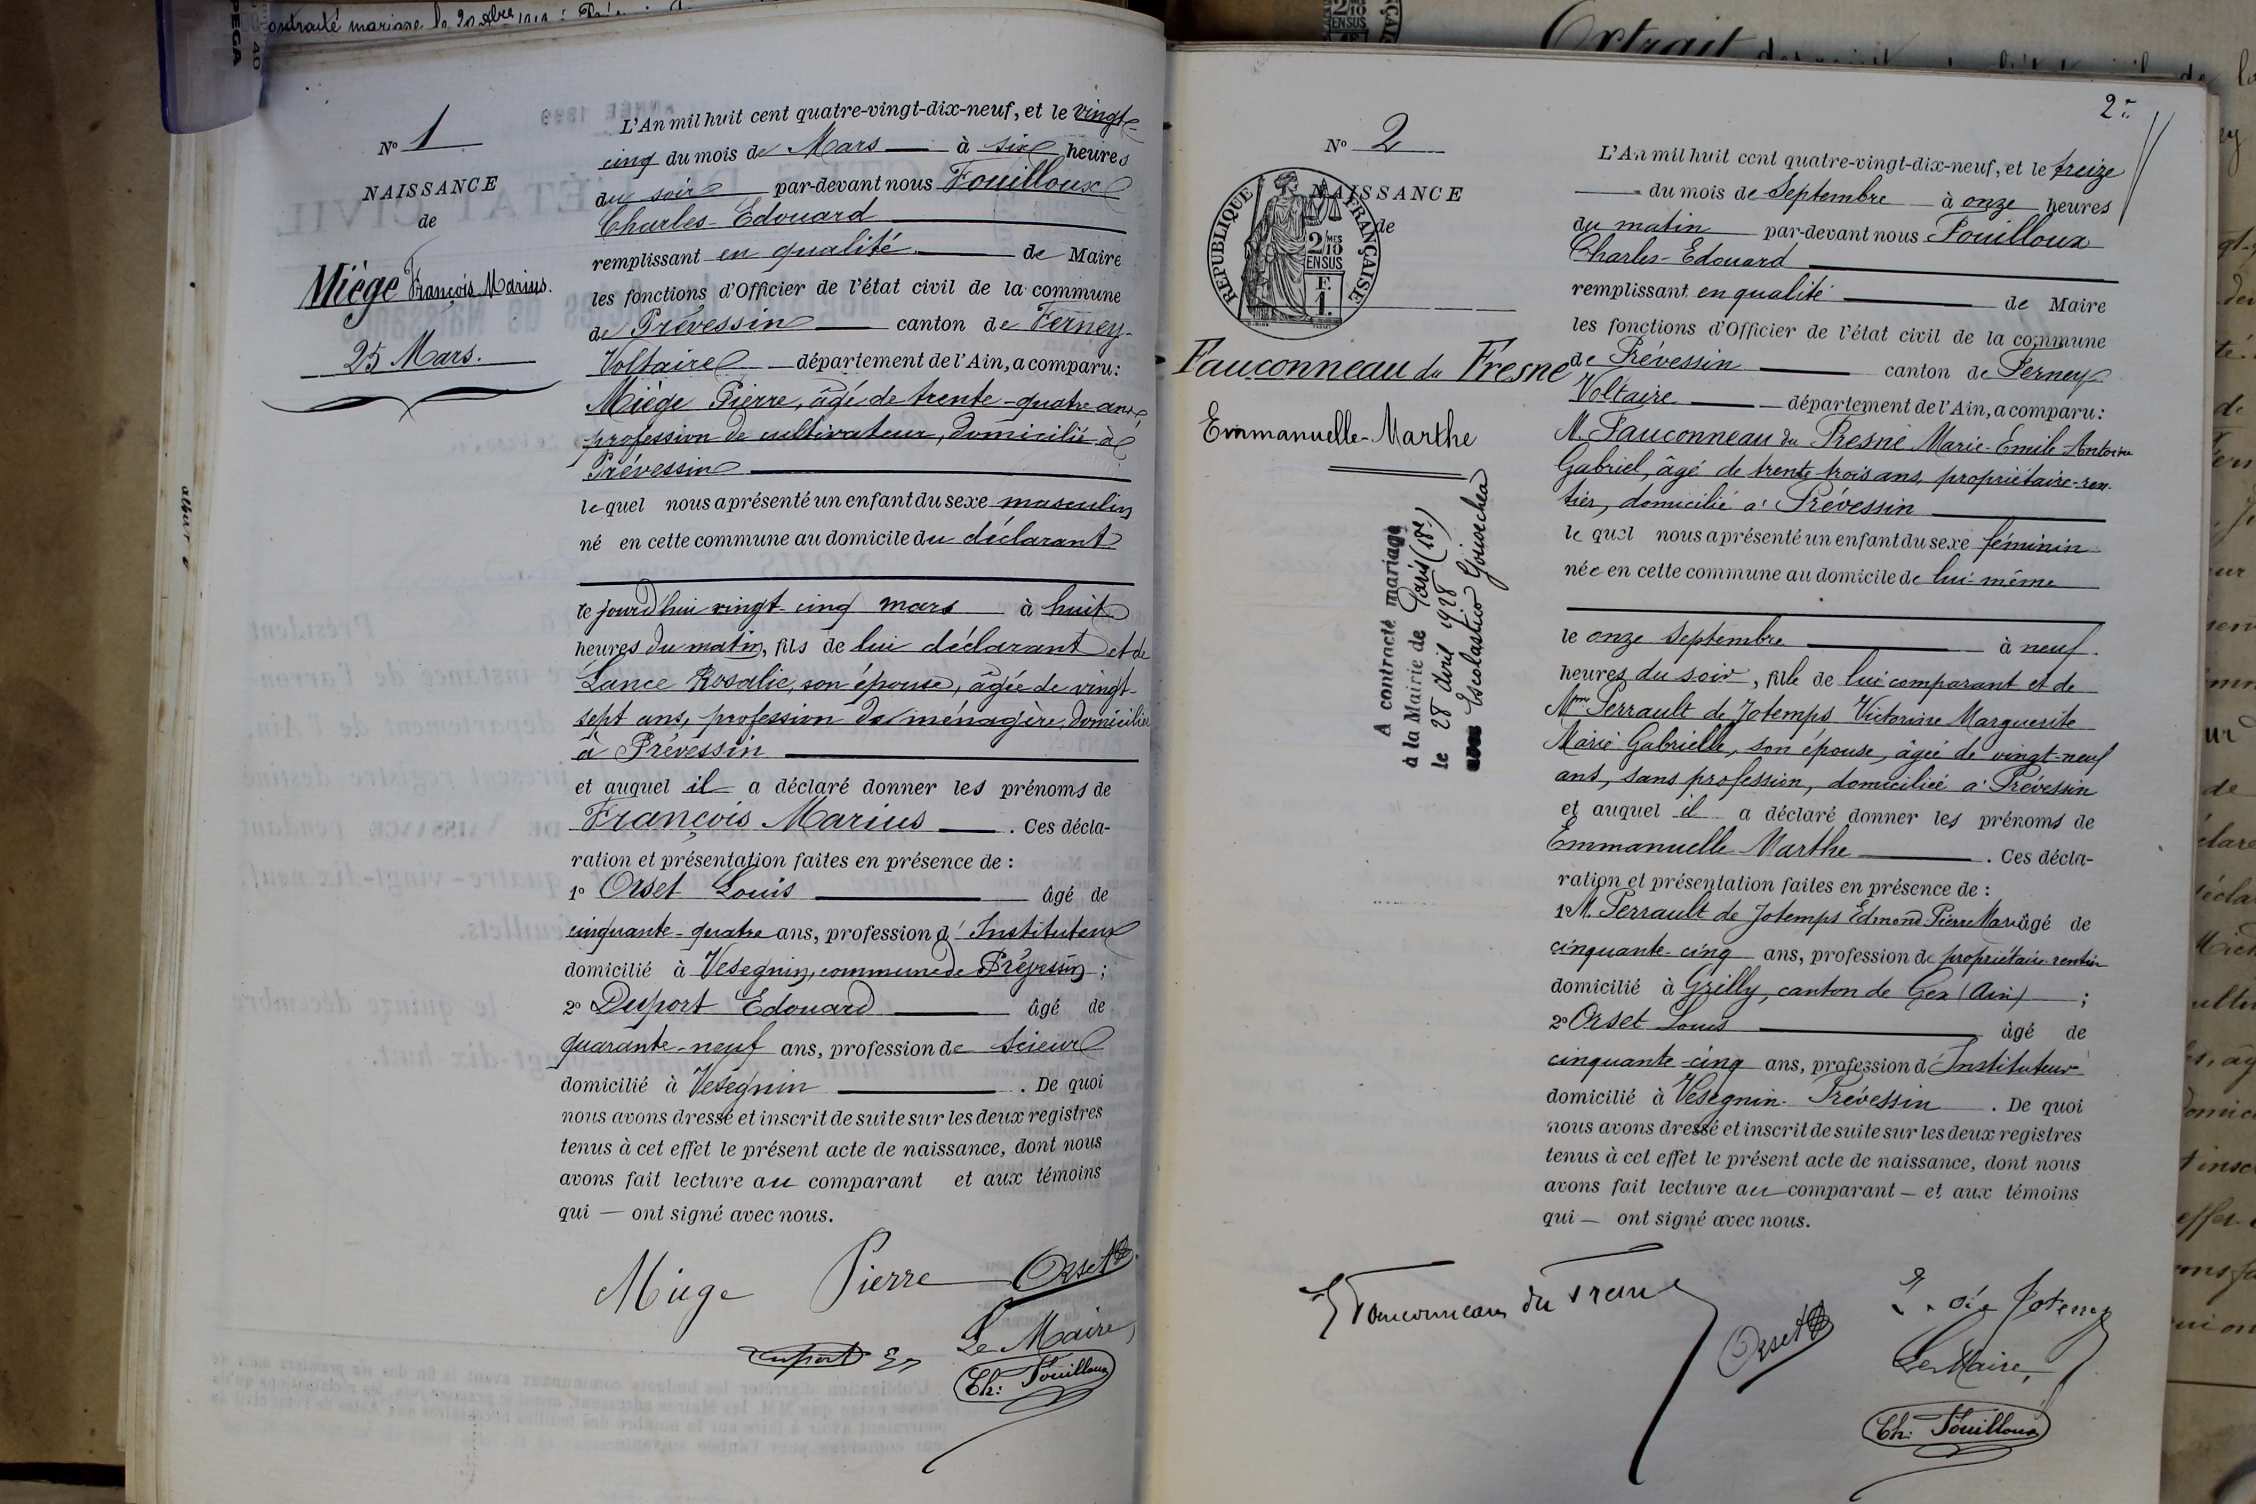 contracté mariage le 20
N° 1
NAISSANCE
de
Miège François Marius.
25 Mars.
L'An mil huit cent quatre-vingt-dix-neuf, et le vingt-
cinq du mois de Mars à six heures
du soir par-devant nous Fouilloux
Charles-Edouard
remplissant en qualité de Maire
les fonctions d'Officier de l'état civil de la commune
de Prévessin canton de Ferney-
Voltaire département de l'Ain, a comparu:
Miège Pierre, âgé de trente-quatre ans,
profession de cultivateur, domicilié à
Prévessin
le quel nous a présenté un enfant du sexe masculin
né en cette commune au domicile du déclarant
ce jourd'hui vingt-cinq mars à huit
heures du matin, fils de lui déclarant et de
Lance Rosalie, son épouse, âgée de vingt-
sept ans, profession de ménagère, domiciliée
à Prévessin
et auquel il a déclaré donner les prénoms de
François Marius. Ces décla-
ration et présentation faites en présence de :
1° Orset Louis âgé de
cinquante-quatre ans, profession d'Instituteur
domicilié à Vesegnin, commune de Prévessin ;
2° Duport Edouard âgé de
quarante-neuf ans, profession de scieur
domicilié à Vesegnin. De quoi
nous avons dressé et inscrit de suite sur les deux registres
tenus à cet effet le présent acte de naissance, dont nous
avons fait lecture au comparant et aux témoins
qui — ont signé avec nous.
Miège Pierre Orset
Le Maire,
Duport Ed
Ch: Fouilloux
Extrait
2
N° 2
NAISSANCE
de
REPUBLIQUE FRANÇAISE
2/10
EN SUS
F.
1.
Fauconneau du Fresne
Emmanuelle-Marthe
A contracté mariage
à la Mairie de Paris (18e)
le 28 Avril 1928
avec Escolastico Gouochea
L'An mil huit cent quatre-vingt-dix-neuf, et le treize
du mois de Septembre à onze heures
du matin par-devant nous Fouilloux
Charles-Edouard
remplissant en qualité de Maire
les fonctions d'Officier de l'état civil de la commune
de Prévessin canton de Ferney
Voltaire département de l'Ain, a comparu:
M. Fauconneau du Fresne Marie-Emile Antoine
Gabriel, âgé de trente trois ans, propriétaire-ren-
tier, domicilié à Prévessin
le quel nous a présenté un enfant du sexe féminin
née en cette commune au domicile de lui-même
le onze septembre à neuf
heures du soir, fille de lui comparant et de
Mme Perrault de Jotemps Victorine Marguerite
Marie Gabrielle, son épouse, âgée de vingt-neuf
ans, sans profession, domiciliée à Prévessin
et auquel il a déclaré donner les prénoms de
Emmanuelle Marthe. Ces décla-
ration et présentation faites en présence de :
1° M. Perrault de Jotemps Edmond Pierre Marie âgé de
cinquante-cinq ans, profession de propriétaire-rentier
domicilié à Grilly, canton de Gex (Ain) ;
2° Orset Louis âgé de
cinquante-cinq ans, profession d'Instituteur
domicilié à Vesegnin-Prévessin. De quoi
nous avons dressé et inscrit de suite sur les deux registres
tenus à cet effet le présent acte de naissance, dont nous
avons fait lecture au comparant — et aux témoins
qui — ont signé avec nous.
Fauconneau du Fresne
Orset
de Jotemps
Le Maire,
Ch: Fouilloux